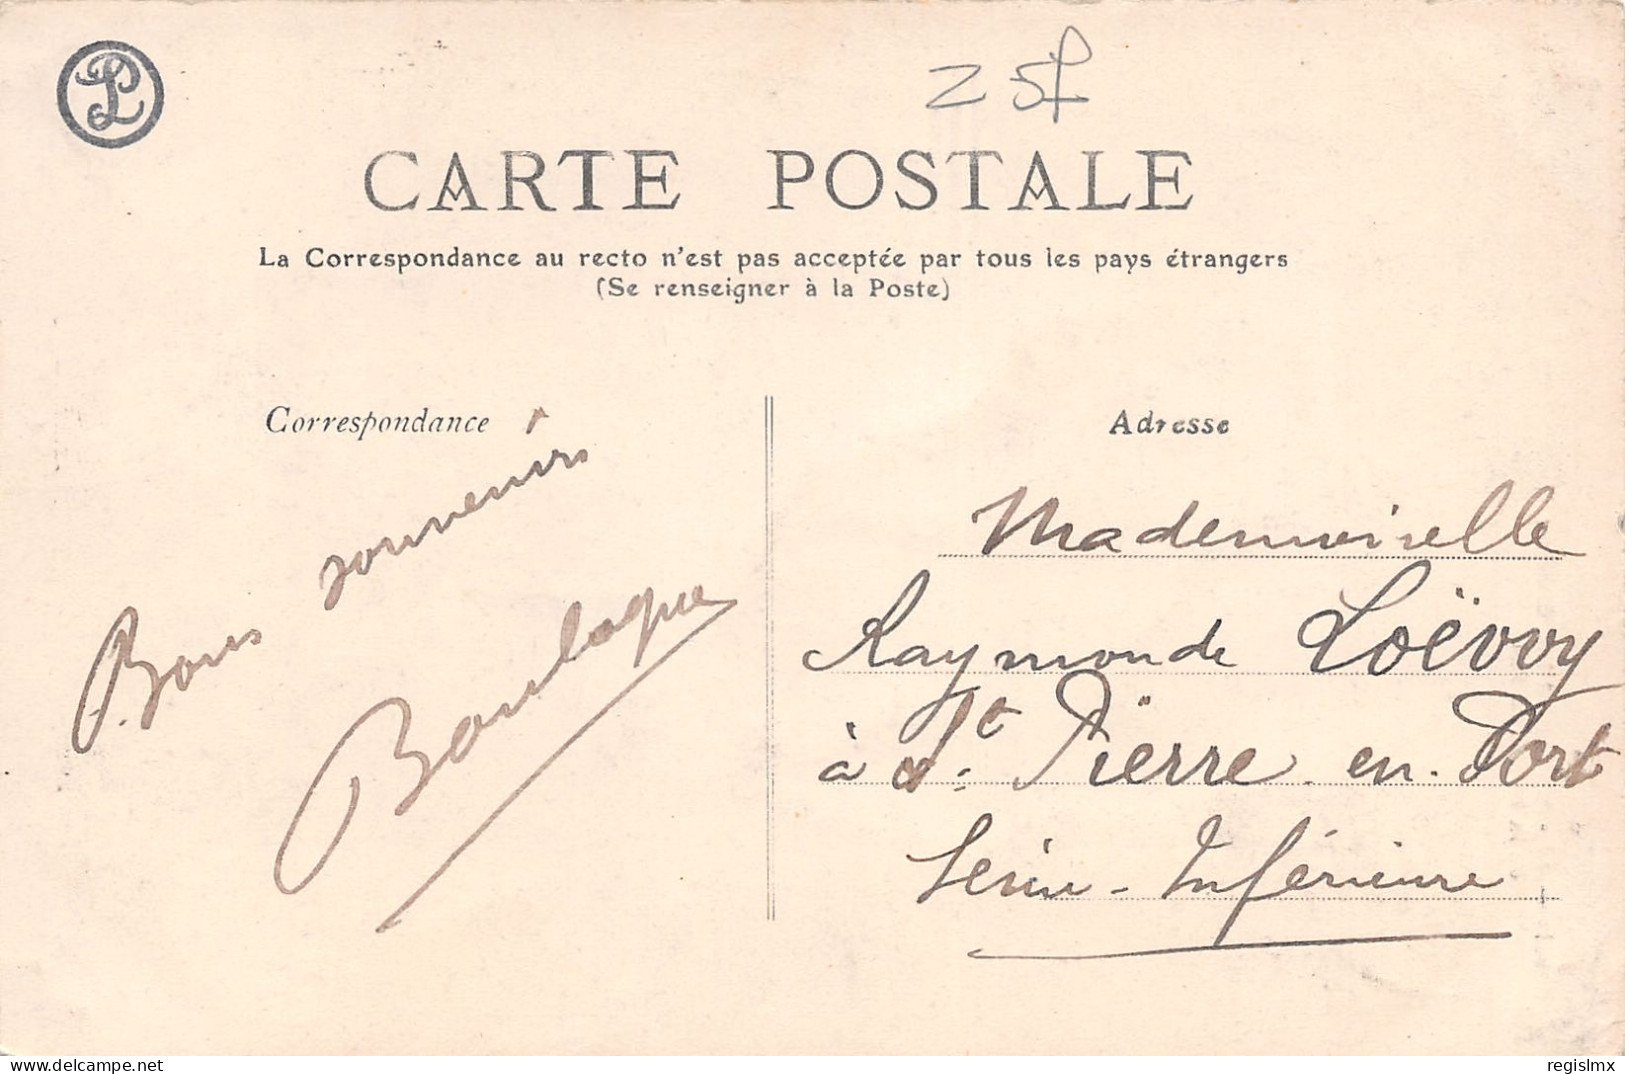 Z 5f
CARTE POSTALE
La Correspondance au recto n'est pas acceptée par tous les pays étrangers
(Se renseigner à la Poste)
Correspondance
Bons souvenirs
Boulogue
Adresse
Mademoiselle
Raymonde Loëvvy
à St. Pierre. en. Port
Seine-Inférieure
www.delcampe.net
regislmx